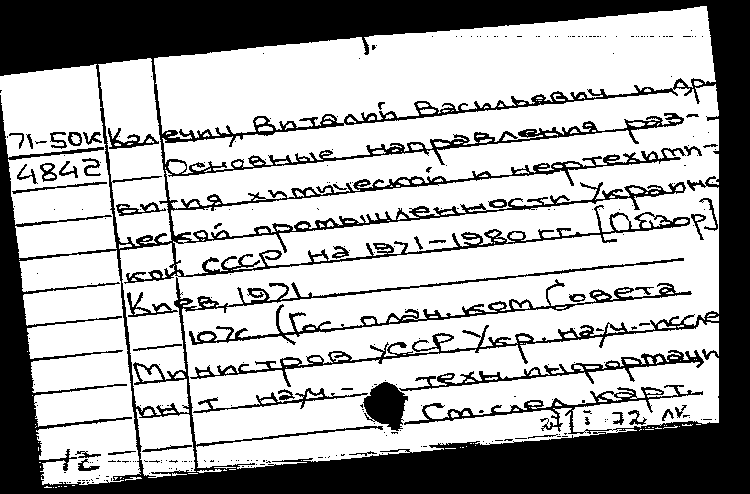 1.
71-50К Калечиц, Виталий Васильевич и др
4842 Основные направления раз-
вития химической и нефтехими-
ческой промышленности Украинс
кой ССР на 1971-1980 гг. [Обзор]
Киев, 1971.
107с (Гос. план. ком Совета
Министров УССР Укр. науч.-иссле
ин-т науч.- техн. информаци
См. след. карт.
12 72 ЛК